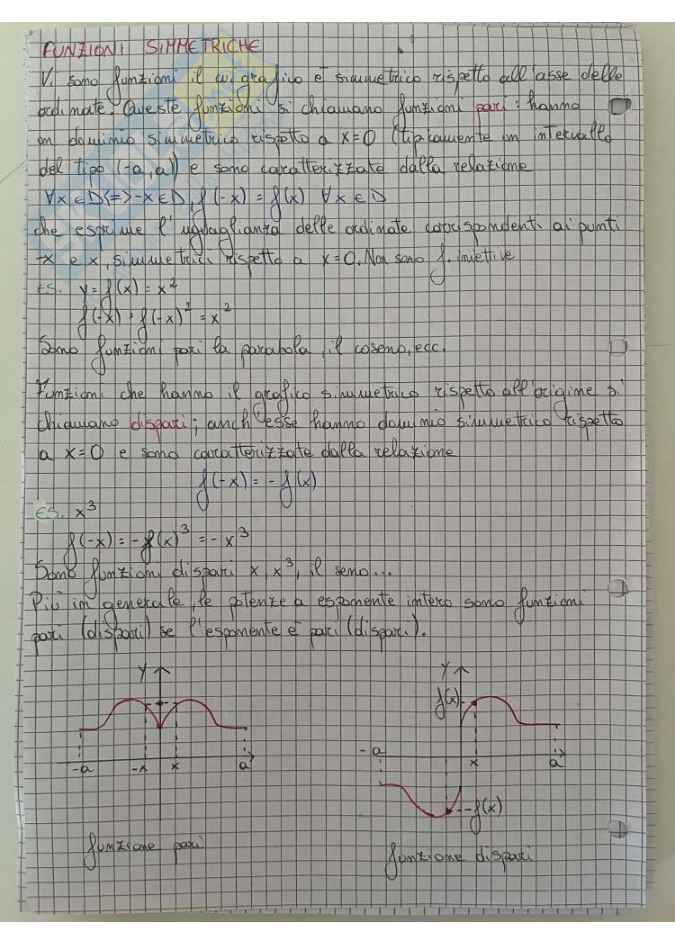 FUNZIONI SIMMETRICHE
Vi sono funzioni il cui grafico è simmetrico rispetto all'asse delle
ordinate. Queste funzioni si chiamano funzioni pari: hanno
un dominio simmetrico rispetto a x=0 (tipicamente un intervallo
del tipo (-a,a)) e sono caratterizzate dalla relazione
∀x∈D(=>-x∈D, f(-x) = f(x) ∀x∈D
che esprime l'uguaglianza delle ordinate corrispondenti ai punti
-x e x, simmetrici rispetto a x=0. Non sono f. iniettive
ES. y=f(x)=x²
f(-x)=f(-x)²=x²
Sono funzioni pari la parabola, il coseno, ecc.
Funzioni che hanno il grafico simmetrico rispetto all'origine si
chiamano dispari; anch'esse hanno dominio simmetrico rispetto
a x=0 e sono caratterizzate dalla relazione
f(-x)=-f(x)
ES. x³
f(-x)=-f(x)³=-x³
Sono funzioni dispari x, x³, il seno...
Più in generale, le potenze a esponente intero sono funzioni
pari (dispari) se l'esponente è pari (dispari).
y y
f(x)
-a
-a -x x a x a
-f(x)
funzione pari
funzione dispari